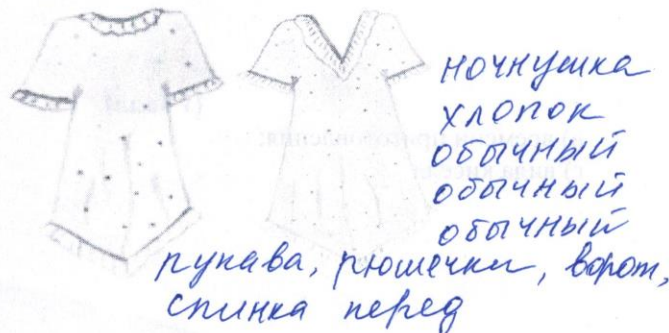 ночнушка
хлопок
обычный
обычный
обычный
рупава, рюшечки, ворот,
спинка перед